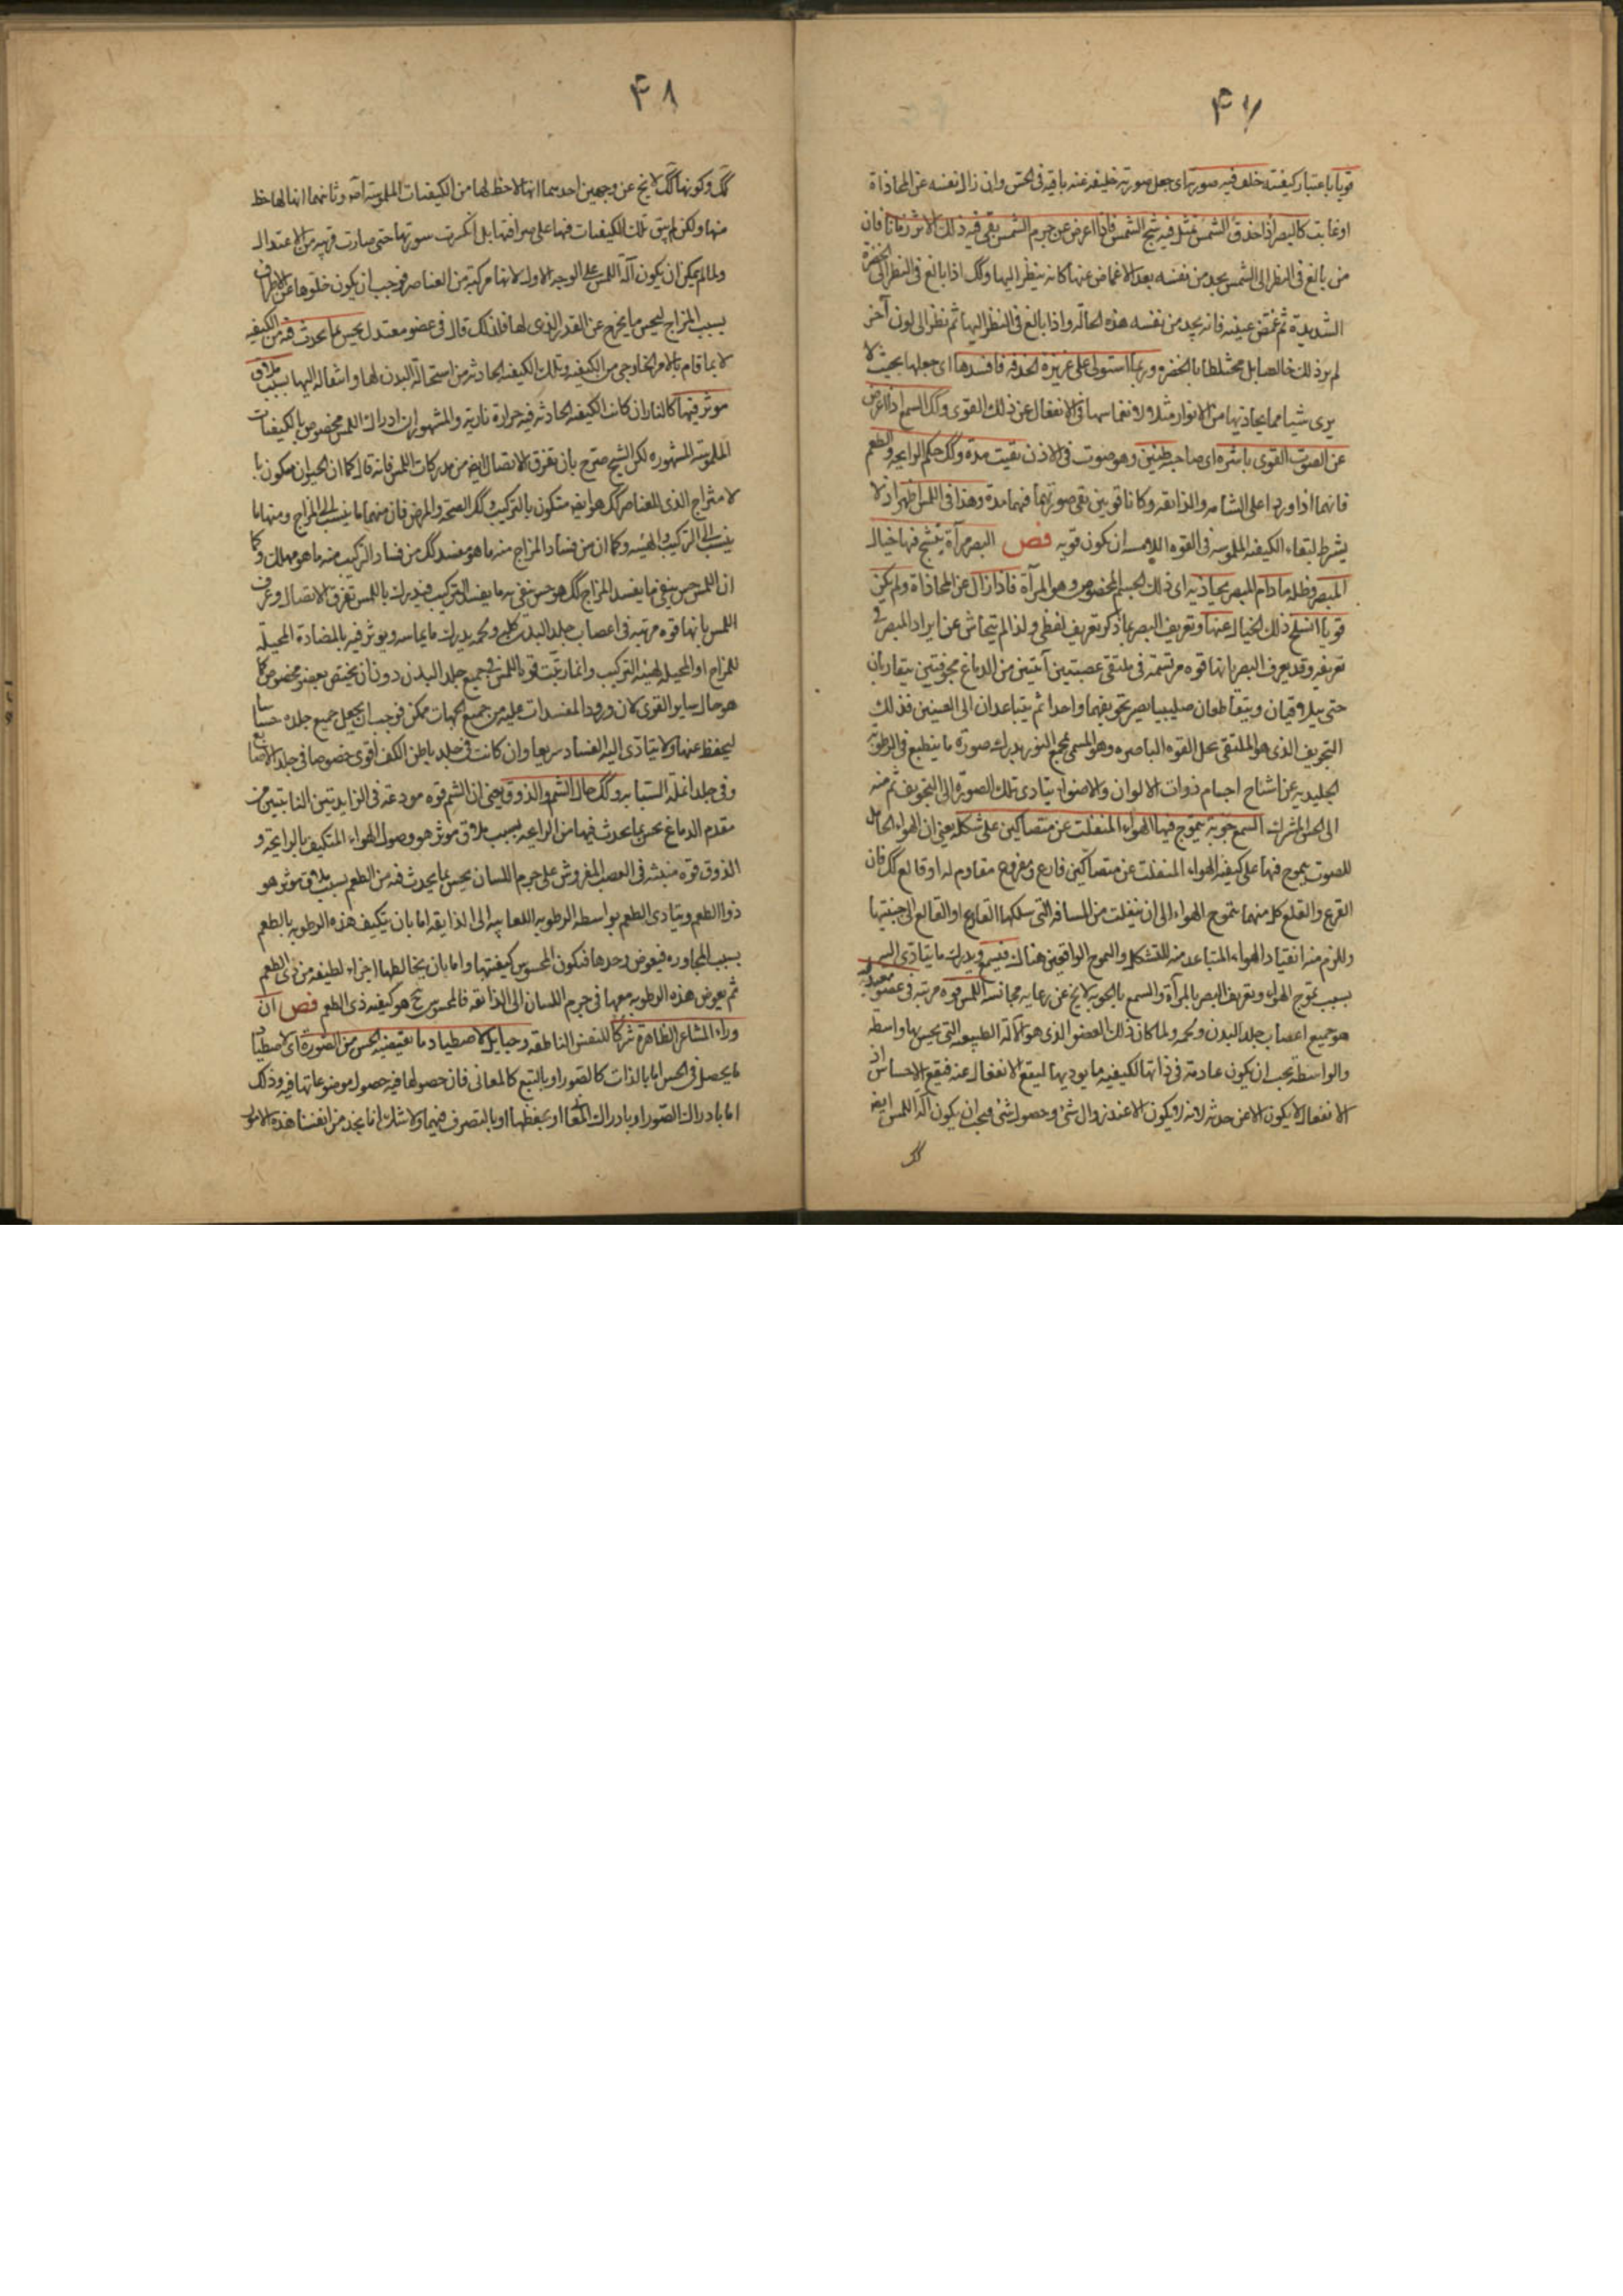 ۴۷
قويا باعتبار كيفيته خلف فيه صورته اى جعل صورته خليفه عنه باقيه فى الحس وان زال بنفسه عن المحاذاة
او غابت كالبصر اذا حدق الشمس تمثل فيه شبح الشمس فاذا اعرض عن جرم الشمس بقى فيه ذلك الاثر زمانا فان
من بالغ فى النظر الى الشمس يجد من نفسه بعد الاغماض عنها كانه ينظر اليها وكك اذا بالغ فى النظر الى الخضرة
الشديدة ثم غمض عينيه فانه يجد من نفسه هذه الحالة واذا بالغ فى النظر اليها ثم نظر الى لون آخر
لم ير ذلك خالصا بل مختلطا بالخضره وربما استولى على غريزة الحدقه فافسدها اى جعلها بحيث لا
يرى شيا مما يحاذيها من الانوار مثلا ولانغماسها فى الانفعال عن ذلك القوى وكك السمع اذا اعرض
عن الصوت القوى باشره اى صاحبه طنين وهو صوت فى الاذن بقيت مدة وكك حكم الرايحه والطعم
فانهما اذا وردا على الشامه والذائقه وكانا قويين بقى صورتهما فيهما مدة وهذا فى اللمس اظهر اذ لا
يشترط لبقاء الكيفيه الملموسه فى القوه اللامسه ان يكون قويه فص البصر مرآة يتشبح فيها خيال
المبصر وظله مادام المبصر يحاذيه اى ذلك الجسم المخصوص وهو المرآة فاذا زال عن المحاذاة ولم يكن
قويا انسلخ ذلك الخيال عنها وتعريف البصر بما ذكر تعريف لفظى ولذا لم يتحاش عن ايراد المبصر فى
تعريفه وقد يعرف البصر بانها قوه مرتسمة فى ملتقى عصبتين آتيتين من الدماغ مجوفتين يتقاربان
حتى يتلاقيان ويتقاطعان صليبيا يصير تجويفهما واحدا ثم يتباعدان الى العينين فذلك
التجويف الذى هو الملتقى محل القوه الباصره وهو المسمى بمجمع النور يدرك صورة ما ينطبع فى الرطوبة
الجليديه عن اشباح اجسام ذوات الالوان والاضواء يتادى تلك الصورة الى التجويف ثم منه
الى الحس المشترك السمع جوبة يتموج فيها الهواء المنفلت عن متصاكين على شكله يعنى ان الهواء الحامل
للصوت يتموج فيها على كيفيه الهواء المنفلت عن متصاكين قارع ومقروع مقاوم له او قالع كك فان
القرع والقلع كل منهما يتموج الهواء الى ان ينفلت من المسافه التى سلكها القارع او القالع الى جنبيتها
وللزم منه انقياد الهواء المتباعد منه للتشكل والتموج الواقعين هناك فيسمع ويدرك ما يتادى اليه
بسبب تموج الهواء وتعريف البصر بالمرآة والسمع بالجوبه لايخ عن رعايه مجانسه اللمس قوه مرتبه فى عضو معتدل
هو جميع اعصاب جلد البدن ولحمه ولما كان ذلك العضو الذى هو الآلة الطبيعه التى يحس بها واسطه
والواسطه يجب ان يكون عادمة فى ذاتها لكيفيه ما يوديها ليقع الانفعال عنه فيقع الاحساس اذ
الانفعال لا يكون الا عن حدثه لانه لا يكون الا عند زوال شئ وحصول شئ فيجب ان يكون آلة اللمس ايضه
كك
۴۸
كك وكونها كك لايخ عن وجهين احدهما انها لاحظ لها من الكيفيات الملموسه اصه وثانيهما انها لها حظ
منها ولكن لم يبق تلك الكيفيات فيها على صرافتها بل انكسرت سورتها حتى صارت قريبه من الاعتدال
ولما لم يمكن ان يكون آلة اللمس على الوجه الاول لانها مركبة من العناصر فوجب ان يكون خلوها عن الاطراف
بسبب المزاج ليحس ما يخرج عن القدر الذى لها فلذلك قال فى عضو معتدل يحس بما يحدث فيه من الكيفيه
لا بما قام بالامر الخارجى من الكيفيه وتلك الكيفيه الحادثه من استحالة البدن لها وانتقاله اليها بسبب ملاق
موثر فيها كالنار ان كانت الكيفيه الحادثه فيه حرارة ناريه والمشهور ان ادراك اللمس مخصوص بالكيفيات
الملموسه المشهوره لكن الشيخ صرح بان تفرق الاتصال ايضه من مدركات اللمس فانه قال كما ان الحيوان متكون با
لامتزاج الذى للعناصر كك هو ايضه متكون بالتركيب وكك الصحة والمرض فان منهما ما ينسب الى المزاج ومنها ما
ينسب الى التركيب والهيئه وكما ان من فساد المزاج منه ما هو مفسد كك من فساد التركيب منه ما هو مهلك وكما
ان اللمس حس يتقى ما يفسد المزاج كك هو حس يتقى به ما يفسد التركيب فيدرك باللمس تفرق الاتصال وعرف
اللمس بانها قوه مرتبه فى اعصاب جلد البدن كله ولحمه يدرك ما يماسه ويوثر فيه بالمضادة المحيلة
للمزاج او المحيله لهيئه التركيب وانما رتبت قوة اللمس فى جميع جلد البدن دون ان يختص بعضو مخصوص كما
هو حال ساير القوى لان ورود المفسدات عليه من جميع الجهات ممكن فوجب ان يجعل جميع جلده حساسا
ليحفظ عنها ولا يتادى اليه الفساد سريعا وان كانت فى جلد باطن الكف اقوى خصوصا فى جلد الاصابع
وفى جلد انملة السبابه وكك حال الشم والذوق يعنى ان الشم قوه مودعة فى الزايدتين النابتتين من
مقدم الدماغ تحس بما يحدث فيها من الرايحه بسبب ملاق موثر هو وصول الهواء المتكيف بالرايحة و
الذوق قوة منبثه فى العصب المفروش على جرم اللسان يحس بما يحدث فيه من الطعم بسبب ملاق موثر هو
ذو الطعم ويتادى الطعم بواسطه الرطوبه اللعابيه الى الذايقه اما بان يتكيف هذه الرطوبه بالطعم
بسبب المجاوره فيغوض وحدها فيكون المحسوس كيفيتها واما بان يخالطها اجزاء لطيفه من ذى الطعم
ثم يغوض هذه الرطوبه معها فى جرم اللسان الى الذائقه فالمحسوس ح هو كيفيه ذى الطعم فص ان
وراء المشاعر الظاهرة شركا للنفس الناطقه وحبايل لاصطياد ما يقتضيه الحس من الصورة اى لاصطياد
ما يحصل فى الحس اما بالذات كالصور او بالتبع كالمعانى فان حصولها فيه حصول موضوعاتها فيه وذلك
اما بادراك الصور او بادراك المعانى او بحفظها او بالتصرف فيهما ولا شك انا نجد من انفسنا هذه الامور